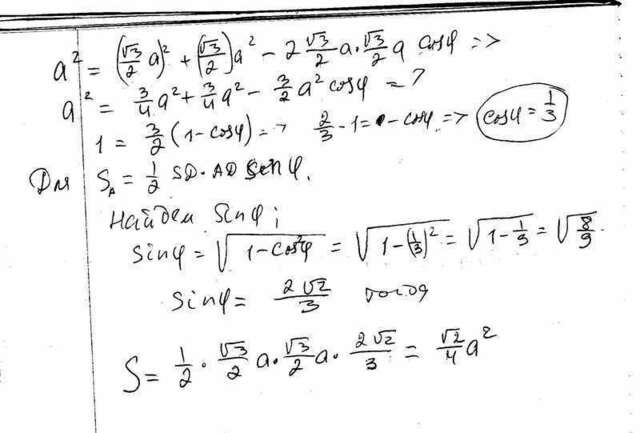 a² = (√3/2 a)² + (√3/2)a² - 2 √3/2 a · √3/2 a cosφ =>
a² = 3/4 a² + 3/4 a² - 3/2 a² cosφ = ?
1 = 3/2 (1 - cosφ) => 2/3 - 1 = - cosφ => cosφ = 1/3
Для S_A = 1/2 SD · AD sinφ.
Найдем sinφ;
sinφ = √(1 - cos²φ) = √(1 - (1/3)²) = √(1 - 1/9) = √(8/9)
sinφ = 2√2/3 тогда
S = 1/2 · √3/2 a · √3/2 a · 2√2/3 = √2/4 a²